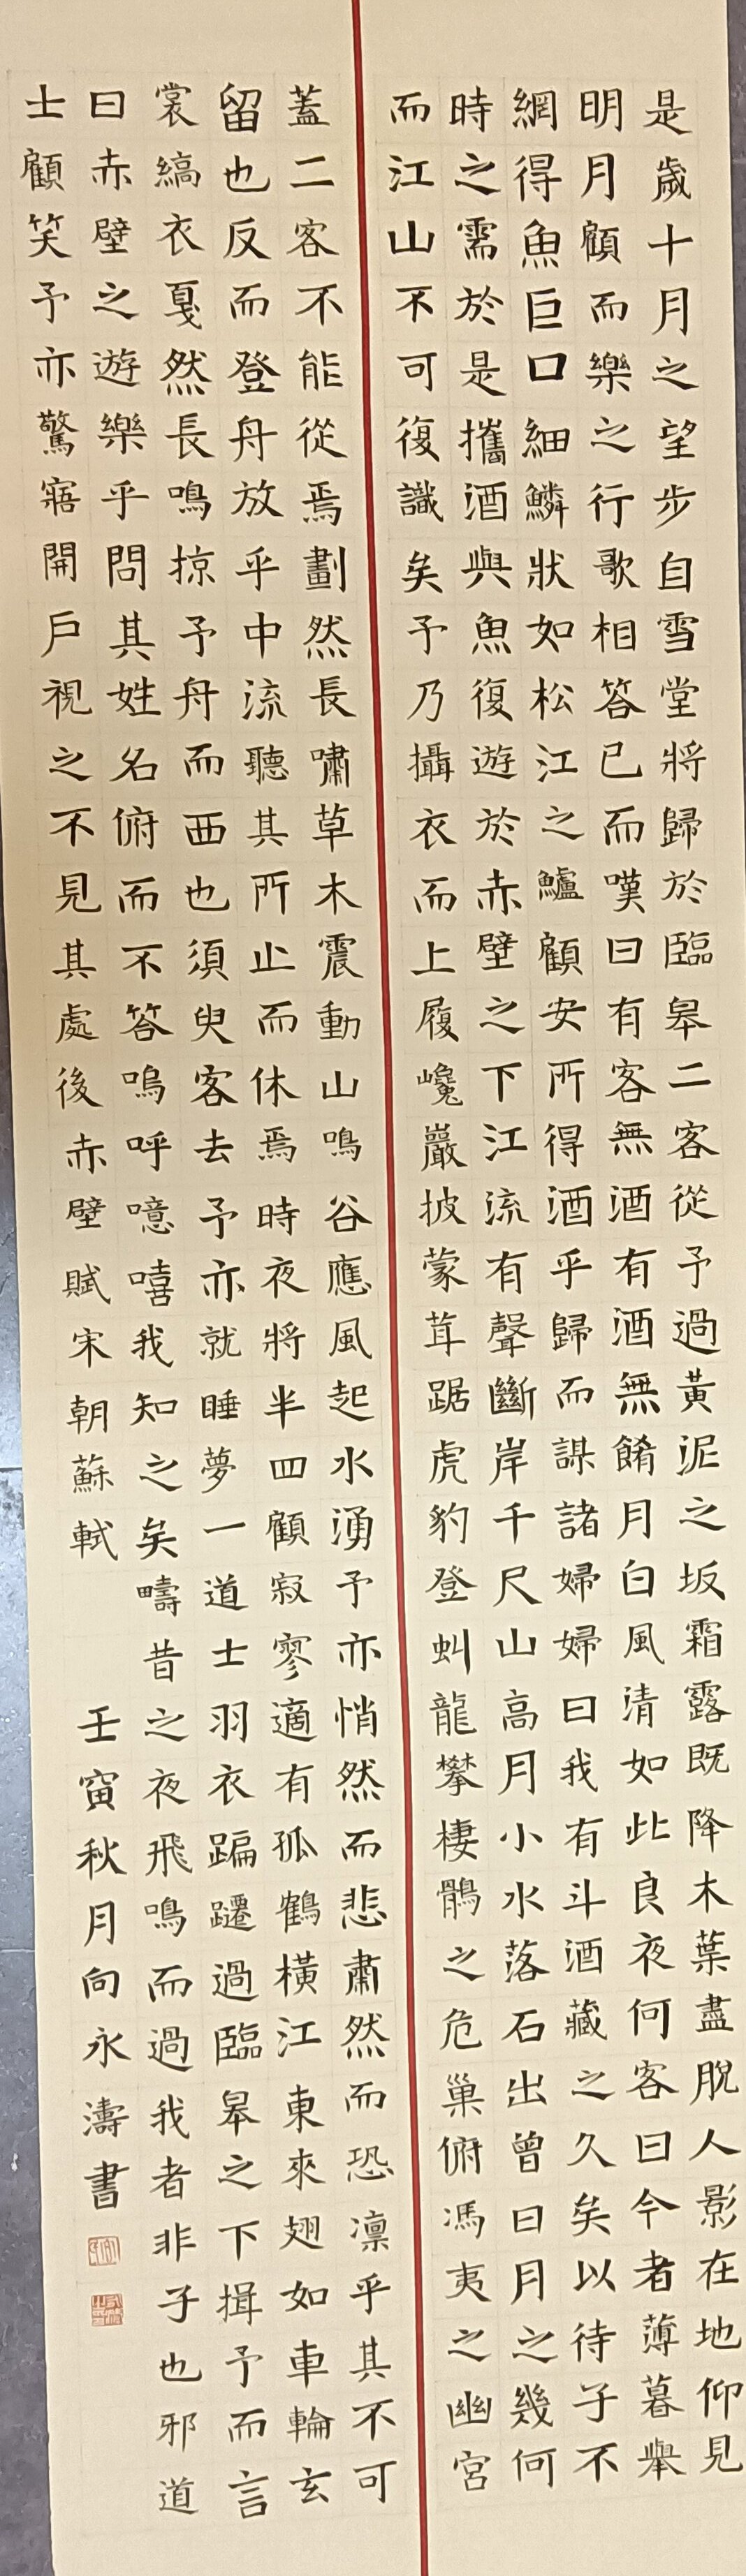 是歲十月之望步自雪堂將歸於臨皋二客從予過黃泥之坂霜露既降木葉盡脫人影在地仰見
明月顧而樂之行歌相答已而嘆曰有客無酒有酒無餚月白風清如此良夜何客曰今者薄暮舉
網得魚巨口細鱗狀如松江之鱸顧安所得酒乎歸而謀諸婦婦曰我有斗酒藏之久矣以待子不
時之需於是攜酒與魚復遊於赤壁之下江流有聲斷岸千尺山高月小水落石出曾日月之幾何
而江山不可復識矣予乃攝衣而上履巉巖披蒙茸踞虎豹登虯龍攀棲鶻之危巢俯馮夷之幽宮
蓋二客不能從焉劃然長嘯草木震動山鳴谷應風起水湧予亦悄然而悲肅然而恐凜乎其不可
留也反而登舟放乎中流聽其所止而休焉時夜將半四顧寂寥適有孤鶴橫江東來翅如車輪玄
裳縞衣戛然長鳴掠予舟而西也須臾客去予亦就睡夢一道士羽衣蹁躚過臨皋之下揖予而言
曰赤壁之遊樂乎問其姓名俯而不答嗚呼噫嘻我知之矣疇昔之夜飛鳴而過我者非子也邪道
士顧笑予亦驚寤開戶視之不見其處後赤壁賦宋朝蘇軾
壬寅秋月向永濤書